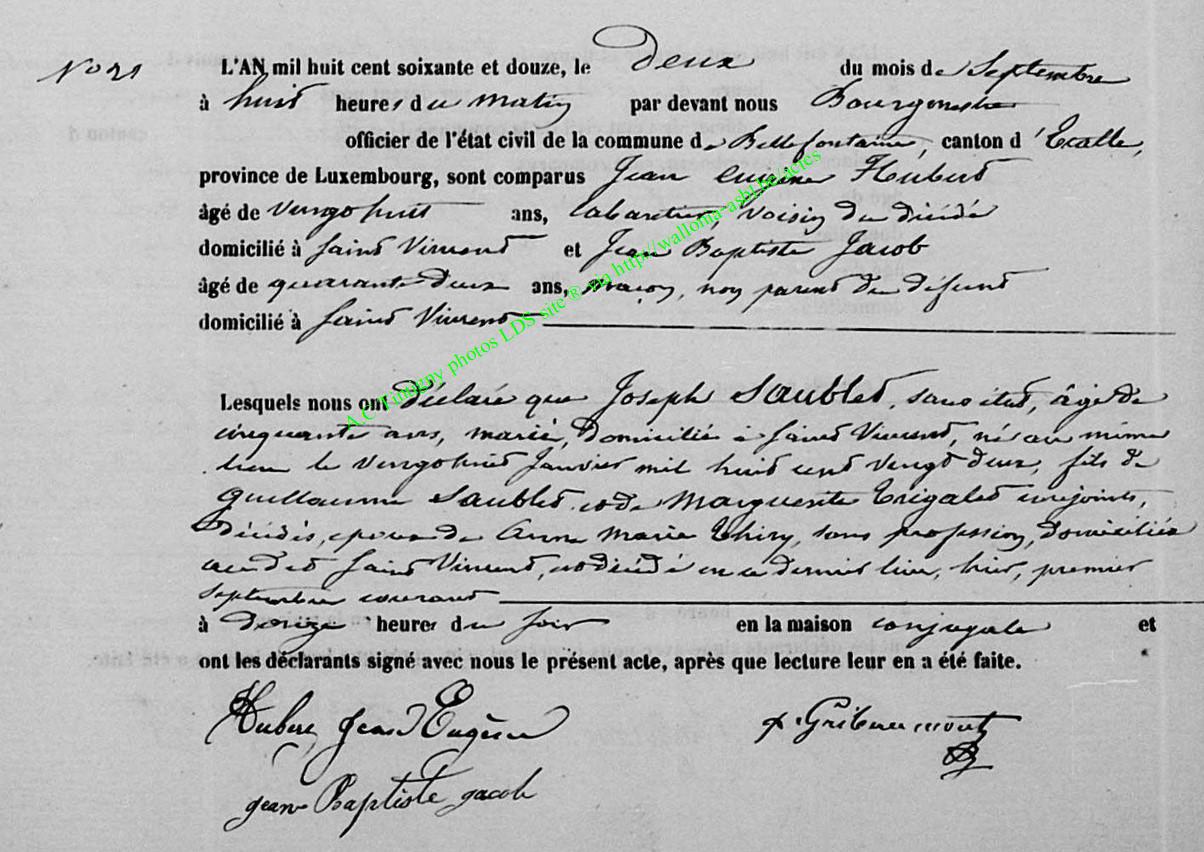 No 21
L'AN mil huit cent soixante et douze, le deux du mois de Septembre
à huit heures du matin par devant nous Bourgmestre
officier de l'état civil de la commune de Bellefontaine, canton d'Etalle,
province de Luxembourg, sont comparus Jean Eugène Hubert
âgé de vingt huit ans, cabaretier, voisin du décédé
domicilié à Saint Vincent et Jean Baptiste Jacob
âgé de quarante deux ans, maçon, non parent du défunt
domicilié à Saint Vincent
Lesquels nous ont déclaré que Joseph Saublet, sans état, âgé de
cinquante ans, marié, domicilié à Saint Vincent, né au même
lieu le vingt huit Janvier mil huit cent vingt deux, fils de
Guillaume Saublet et de Marguerite Trigalet conjoints,
décédés, époux de Anne Marie Thiry, sans profession, domiciliée
au dit Saint Vincent, est décédé en ce dernier lieu, hier, premier
Septembre courant
à heures du soir en la maison conjugale et
ont les déclarants signé avec nous le présent acte, après que lecture leur en a été faite.
Hubert Jean Eugène
Jean Baptiste Jacob
A.C Tintigny photos LDS site ® via http://wallonia-asbl.be/actes